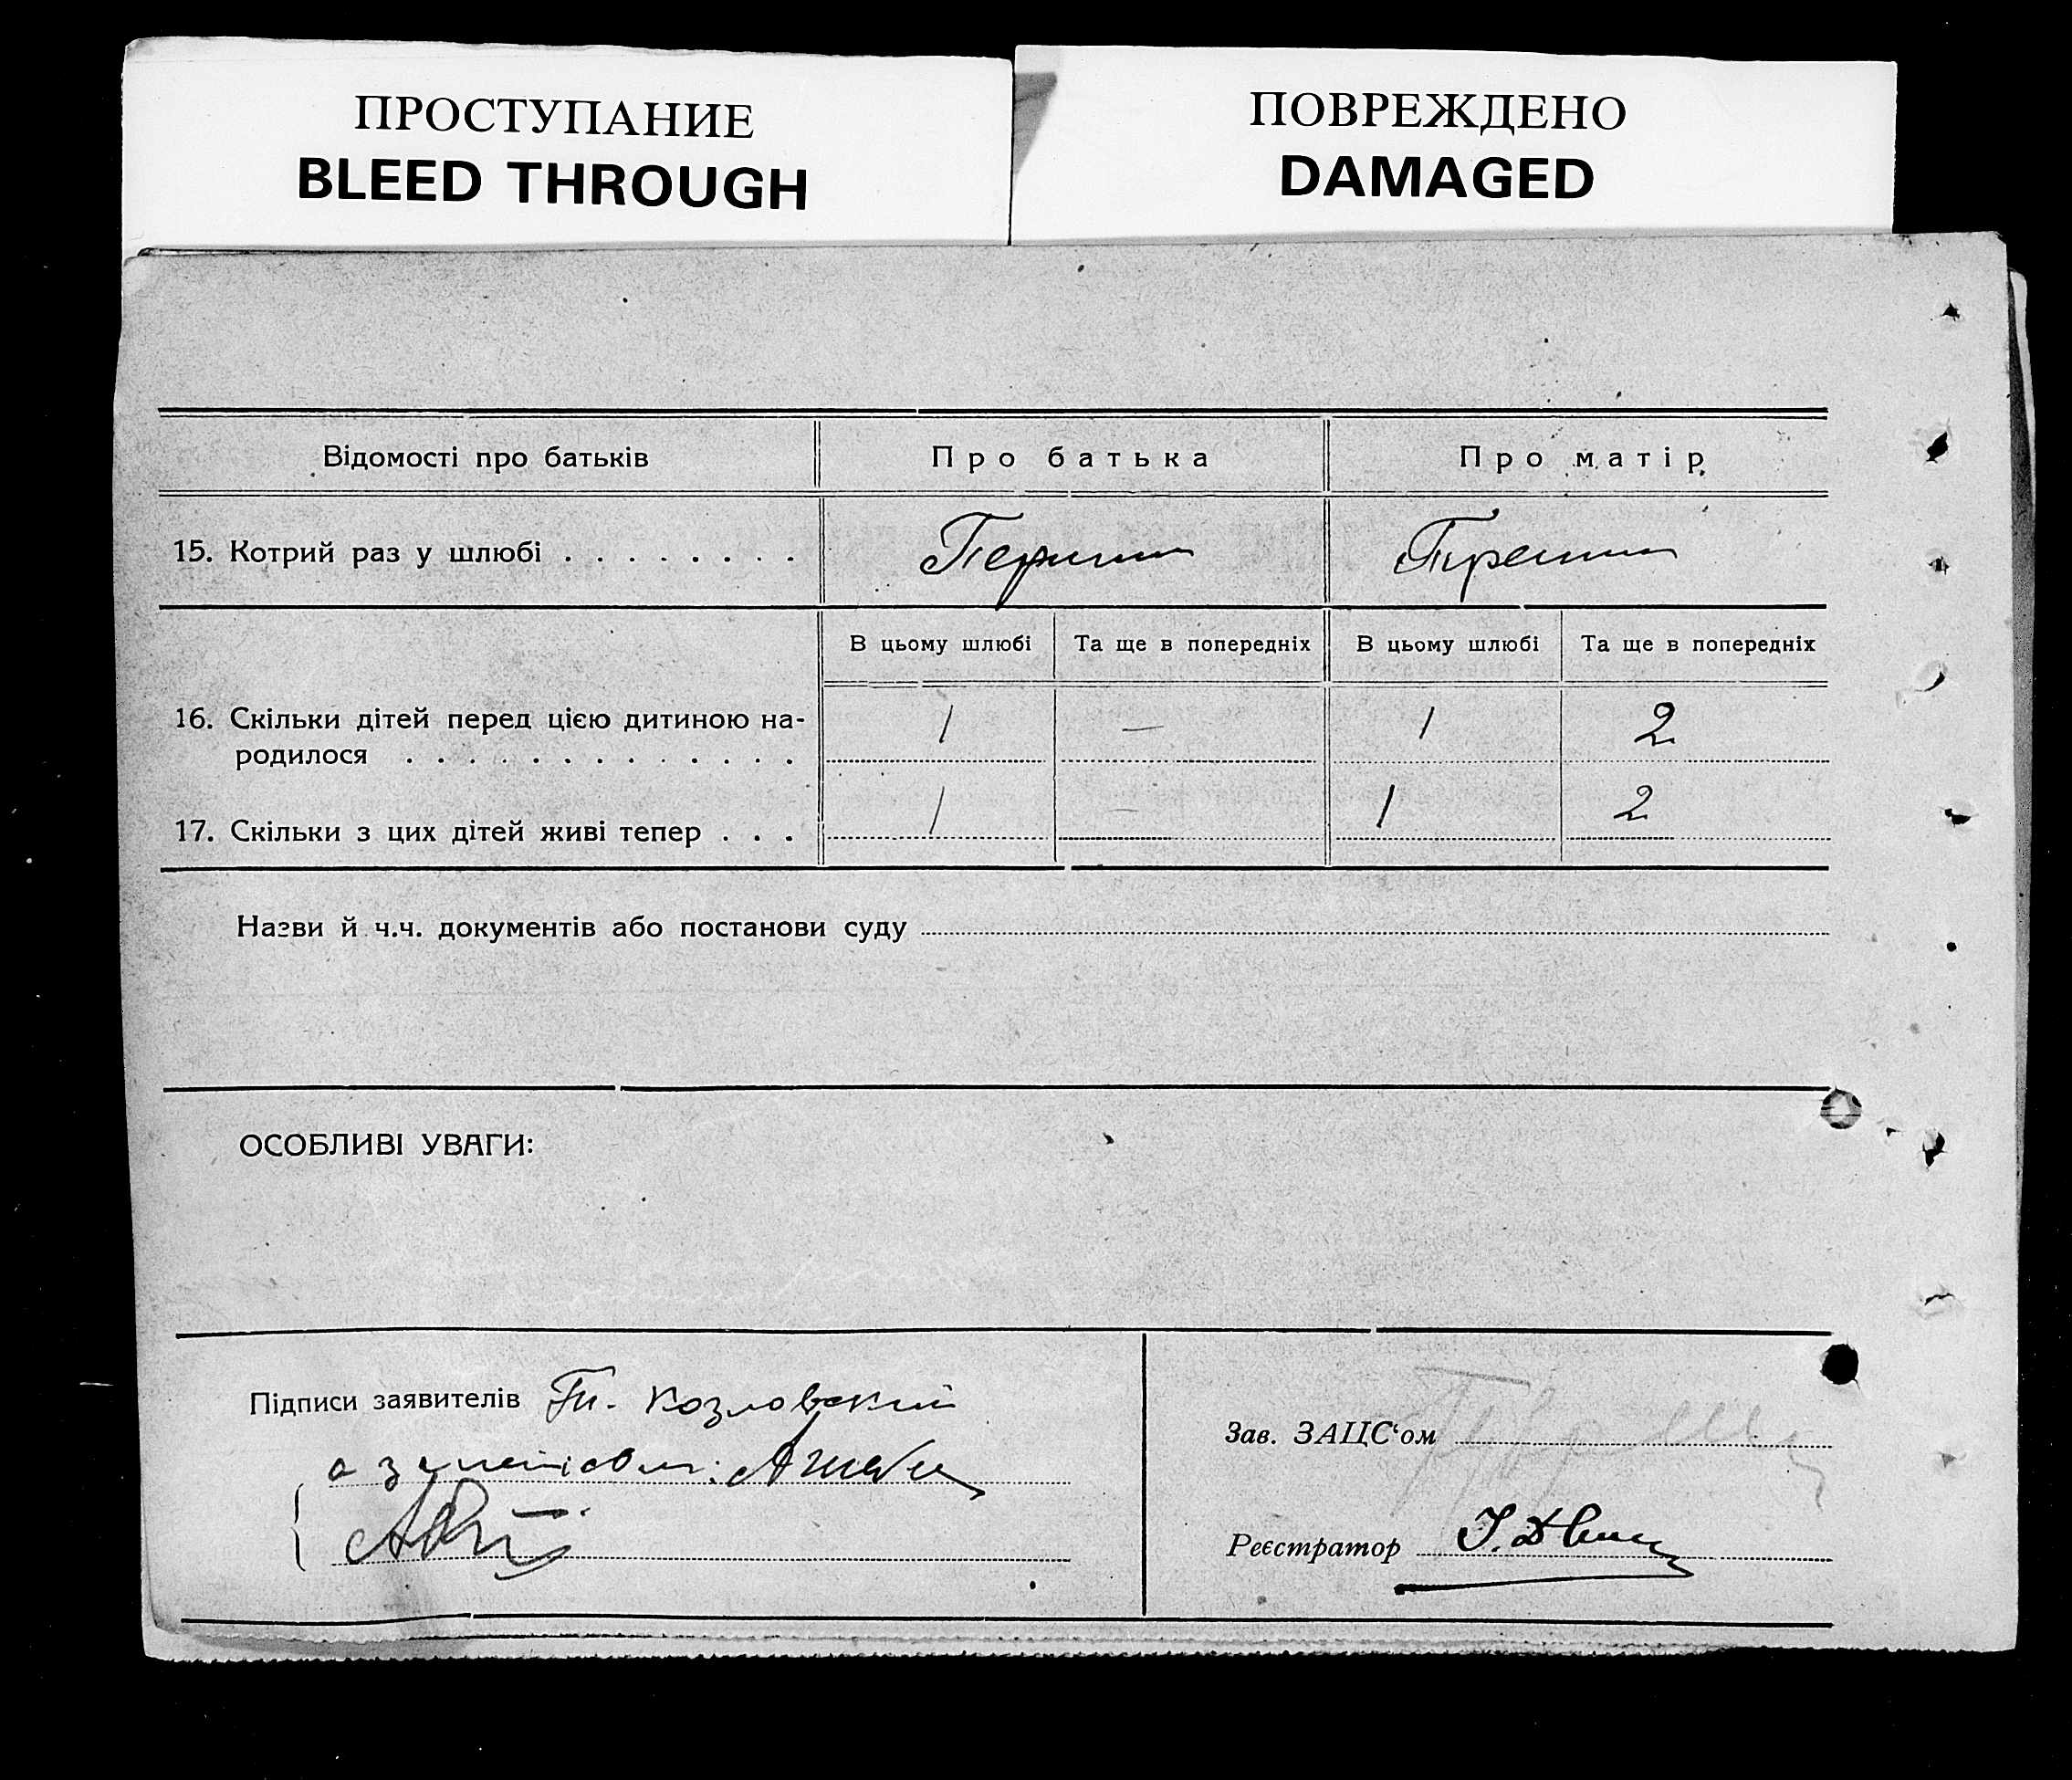 ПРОСТУПАНИЕ
BLEED THROUGH
ПОВРЕЖДЕНО
DAMAGED
Відомості про батьків Про батька Про матір
15. Котрий раз у шлюбі . . . . . . . .
В цьому шлюбі Та ще в попередніх В цьому шлюбі Та ще в попередніх
16. Скільки дітей перед цією дитиною на-
родилося . . . . . . . . . . . . . 1 — 1 2
17. Скільки з цих дітей живі тепер . . . 1 — 1 2
Назви й ч.ч. документів або постанови суду
ОСОБЛИВІ УВАГИ:
Підписи заявителів Козловский
Зав. ЗАЦС'ом
Реєстратор